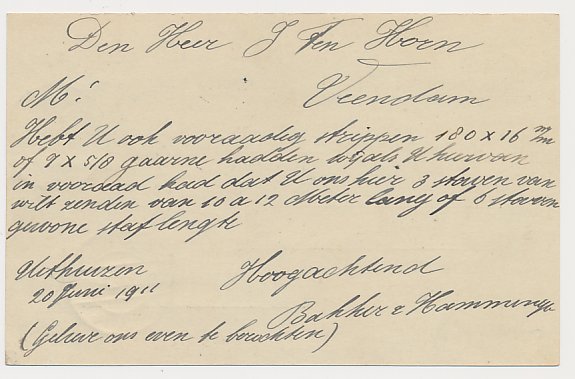 Den Heer J Ten Horn
Veendam
M!
Hebt U ook vooraadig strippen 180 x 16 m/m
of 7 x 5/8 gaarne hadden wij als U hiervan
in vooraad had dat U ons hier 3 staven van
wilt zenden van 10 a 12 Meter lang of 6 staven
gewone staflengte
Uithuizen
20 Juni 1911
Hoogachtend
Bakker & Hamminga
(Gelieve ons even te berichten)